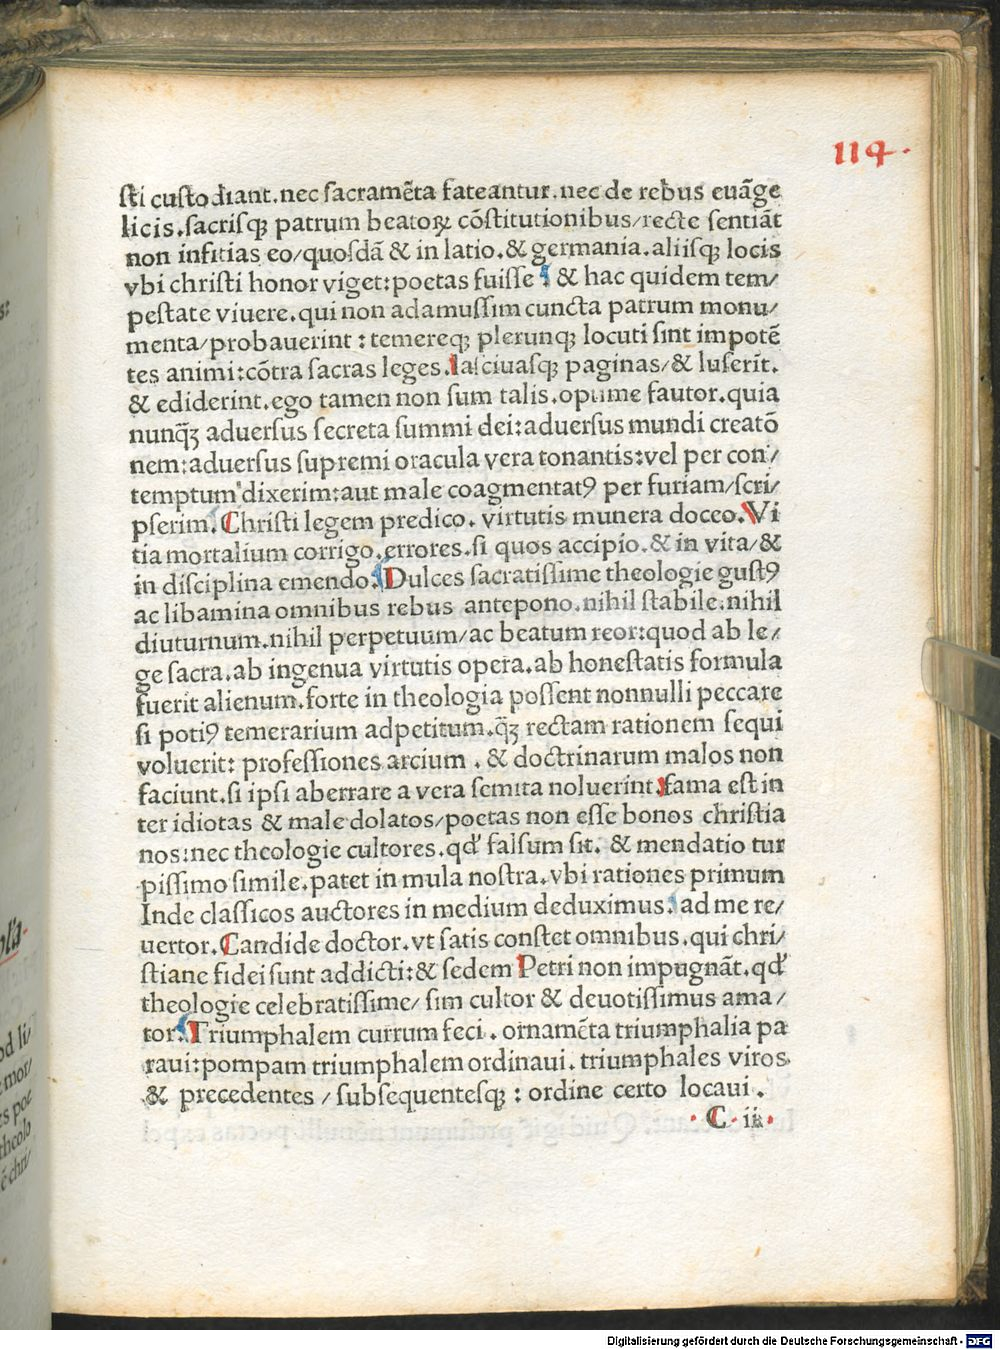 114.
sti custodiant.nec sacramẽta fateantur.nec de rebus euãge
licis.sacrisqꝫ patrum beatoꝝ cõstitutionibus/recte sentiãt
non infitias eo/quosdã & in latio.& germania.aliisqꝫ locis
vbi christi honor viget:poetas fuisse & hac quidem tem/
pestate viuere.qui non adamussim cuncta patrum monu/
menta/probauerint : temereqꝫ plerunqꝫ locuti sint impotẽ
tes animi:cõtra sacras leges.lasciuasqꝫ paginas/& luserĩt.
& ediderint.ego tamen non sum talis.optime fautor.quia
nunq̃ꝫ aduersus secreta summi dei:aduersus mundi creatõ
nem:aduersus supremi oracula vera tonantis:vel per con/
temptum dixerim:aut male coagmentatꝰ per furiam/scri/
pserim. Christi legem predico. virtutis munera doceo.Vi
tia mortalium corrigo.errores.si quos accipio.& in vita/&
in disciplina emendo. Dulces sacratissime theologie gustꝰ
ac libamina omnibus rebus antepono.nihil stabile.nihil
diuturnum.nihil perpetuum/ac beatum reor:quod ab le/
ge sacra.ab ingenua virtutis opera.ab honestatis formula
fuerit alienum.forte in theologia possent nonnulli peccare
si potiꝰ temerarium adpetitum.q̃ꝫ rectam rationem sequi
voluerĩt: professiones arcium . & doctrinarum malos non
faciunt.si ipsi aberrare a vera semita noluerint.fama est in
ter idiotas & male dolatos/poetas non esse bonos christia
nos:nec theologie cultores.qd' falsum sit. & mendatio tur
pissimo simile.patet in mula nostra.vbi rationes primum
Inde classicos auctores in medium deduximus. ad me re/
uertor.Candide doctor.vt satis constet omnibus.qui chri/
stiane fidei sunt addicti:& sedem Petri non impugnãt.qd'
theologie celebratissime/ sim cultor & deuotissimus ama/
tor.Triumphalem currum feci . ornamẽta triumphalia pa
raui:pompam triumphalem ordinaui . triumphales viros
& precedentes / subsequentesqꝫ : ordine certo locaui .
. C . ii .
Digitalisierung gefördert durch die Deutsche Forschungsgemeinschaft - DFG